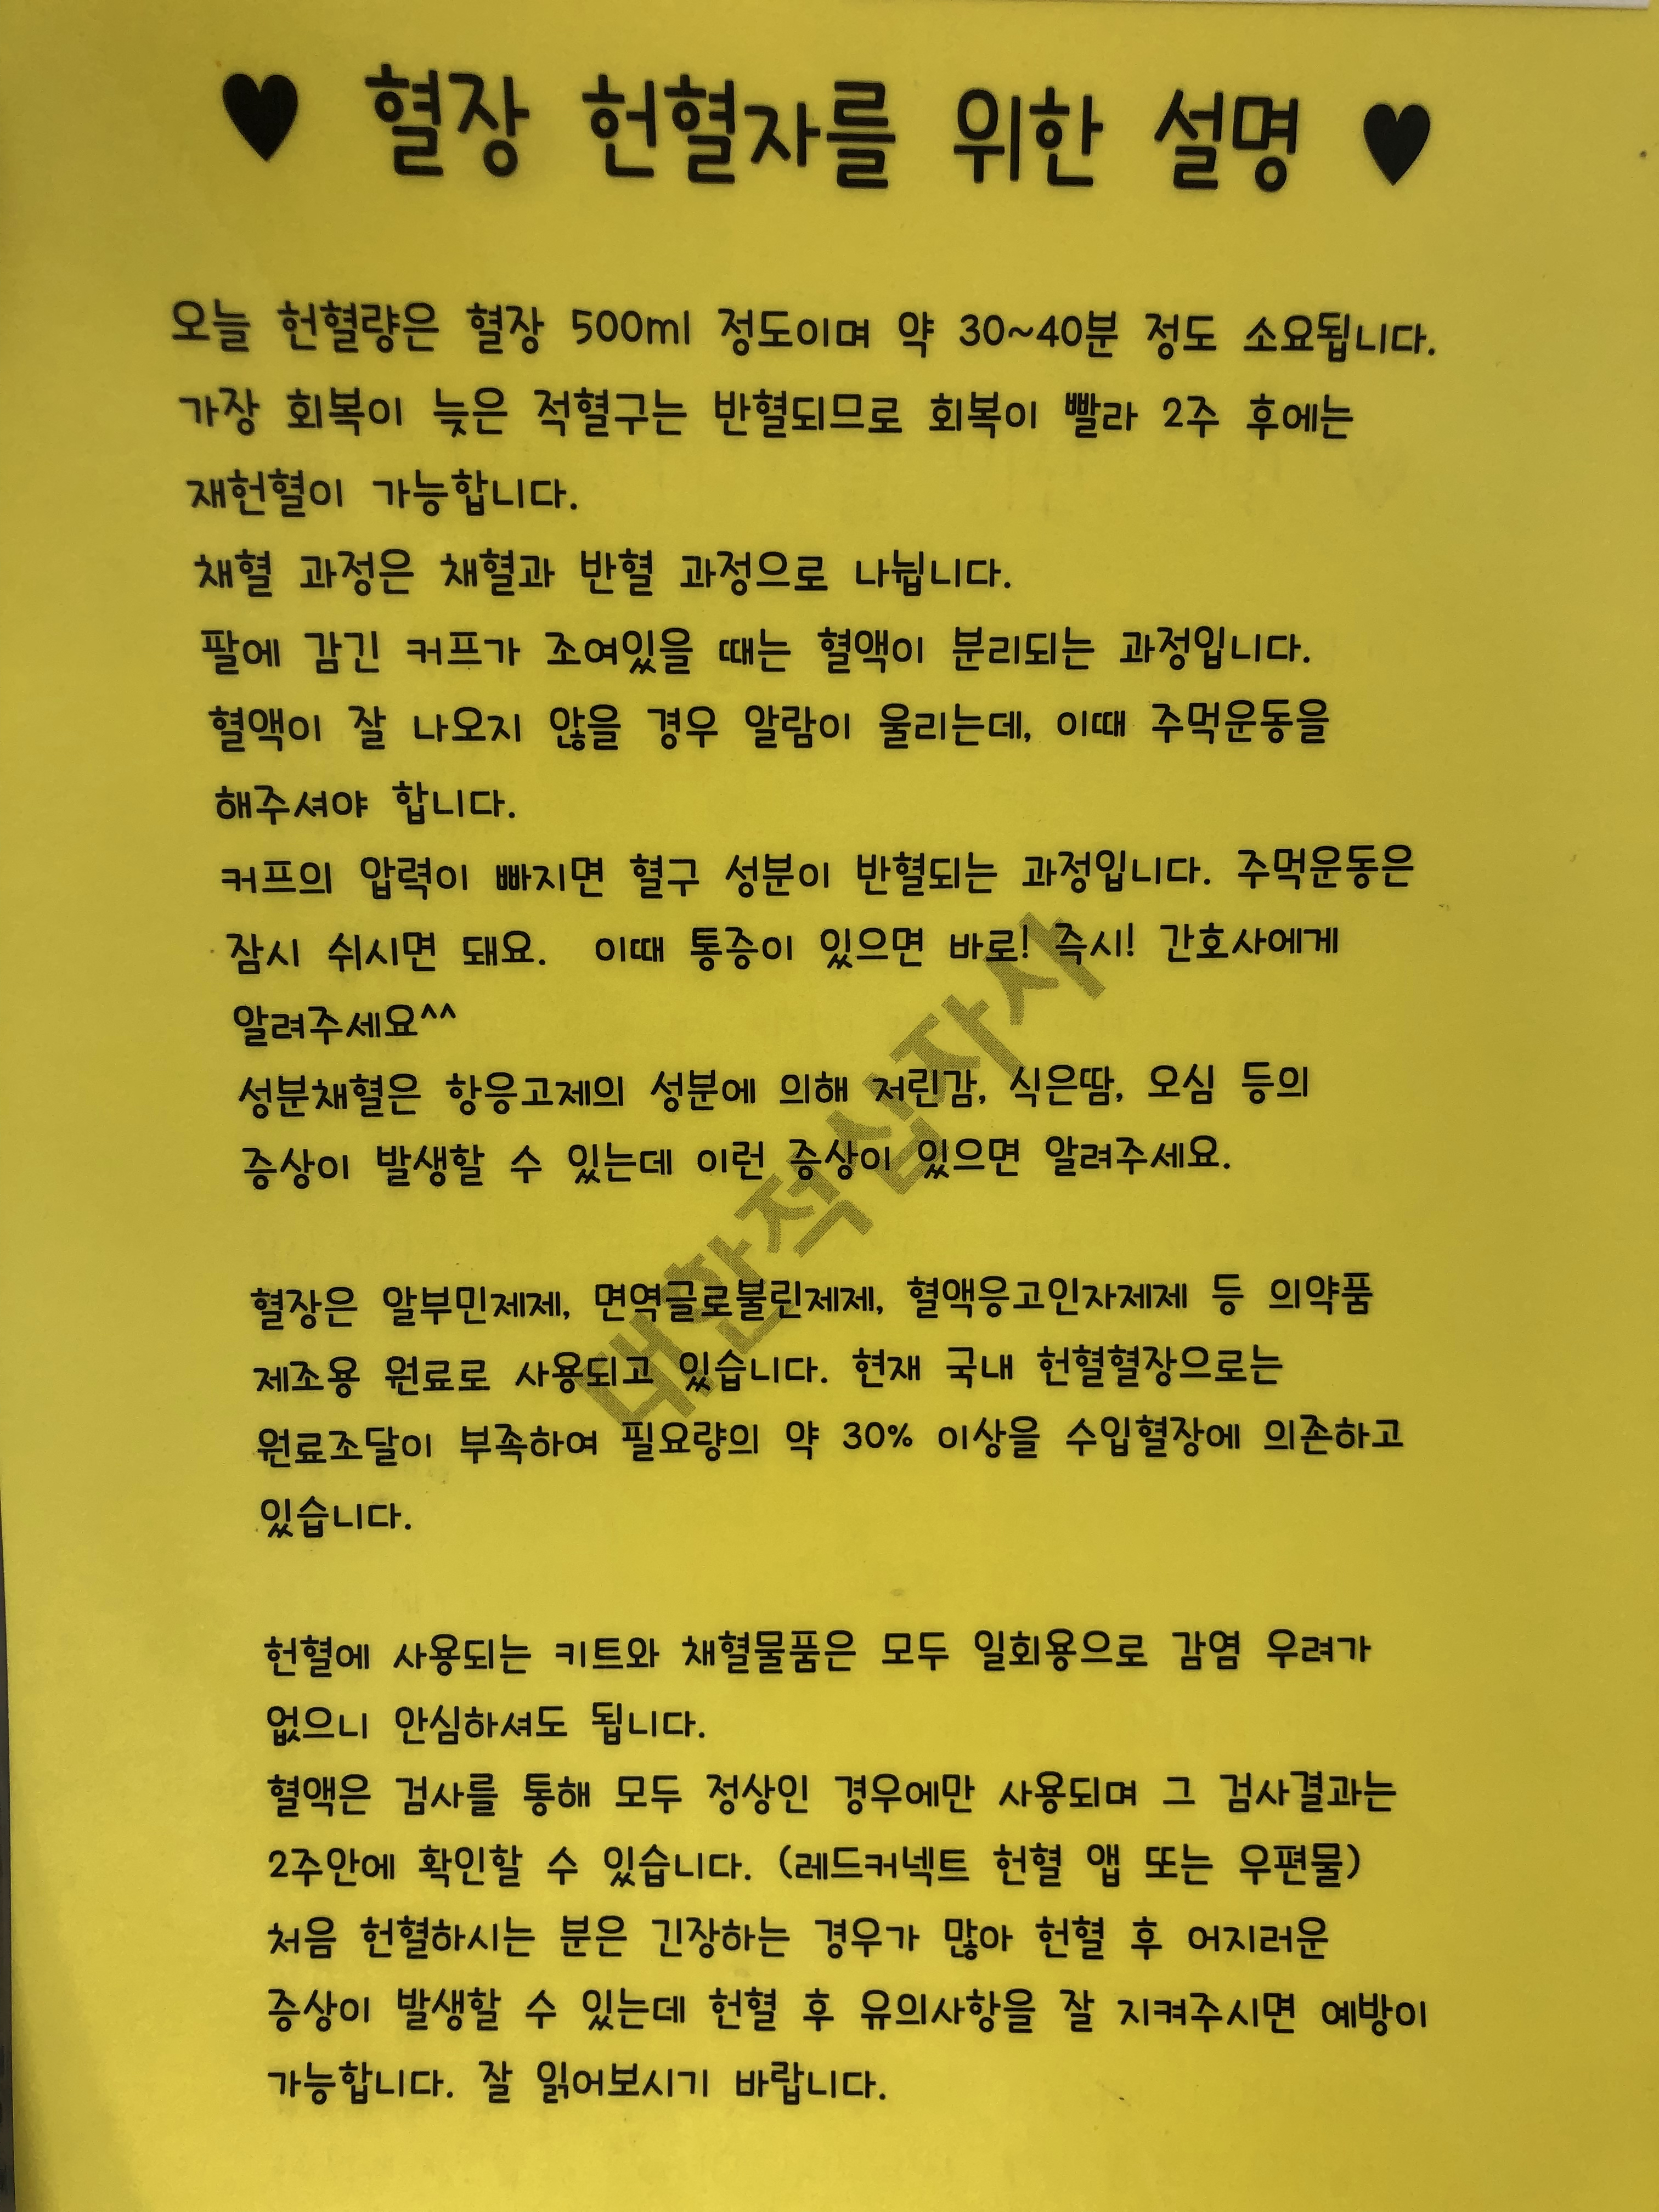 ♥ 혈장 헌혈자를 위한 설명 ♥
오늘 헌혈량은 혈장 500ml 정도이며 약 30~40분 정도 소요됩니다.
가장 회복이 늦은 적혈구는 반혈되므로 회복이 빨라 2주 후에는
재헌혈이 가능합니다.
채혈 과정은 채혈과 반혈 과정으로 나뉩니다.
팔에 감긴 커프가 조여있을 때는 혈액이 분리되는 과정입니다.
혈액이 잘 나오지 않을 경우 알람이 울리는데, 이때 주먹운동을
해주셔야 합니다.
커프의 압력이 빠지면 혈구 성분이 반혈되는 과정입니다. 주먹운동은
잠시 쉬시면 돼요. 이때 통증이 있으면 바로! 즉시! 간호사에게
알려주세요^^
성분채혈은 항응고제의 성분에 의해 저린감, 식은땀, 오심 등의
증상이 발생할 수 있는데 이런 증상이 있으면 알려주세요.
혈장은 알부민제제, 면역글로불린제제, 혈액응고인자제제 등 의약품
제조용 원료로 사용되고 있습니다. 현재 국내 헌혈혈장으로는
원료조달이 부족하여 필요량의 약 30% 이상을 수입혈장에 의존하고
있습니다.
헌혈에 사용되는 키트와 채혈물품은 모두 일회용으로 감염 우려가
없으니 안심하셔도 됩니다.
혈액은 검사를 통해 모두 정상인 경우에만 사용되며 그 검사결과는
2주안에 확인할 수 있습니다. (레드커넥트 헌혈 앱 또는 우편물)
처음 헌혈하시는 분은 긴장하는 경우가 많아 헌혈 후 어지러운
증상이 발생할 수 있는데 헌혈 후 유의사항을 잘 지켜주시면 예방이
가능합니다. 잘 읽어보시기 바랍니다.
대한적십자사